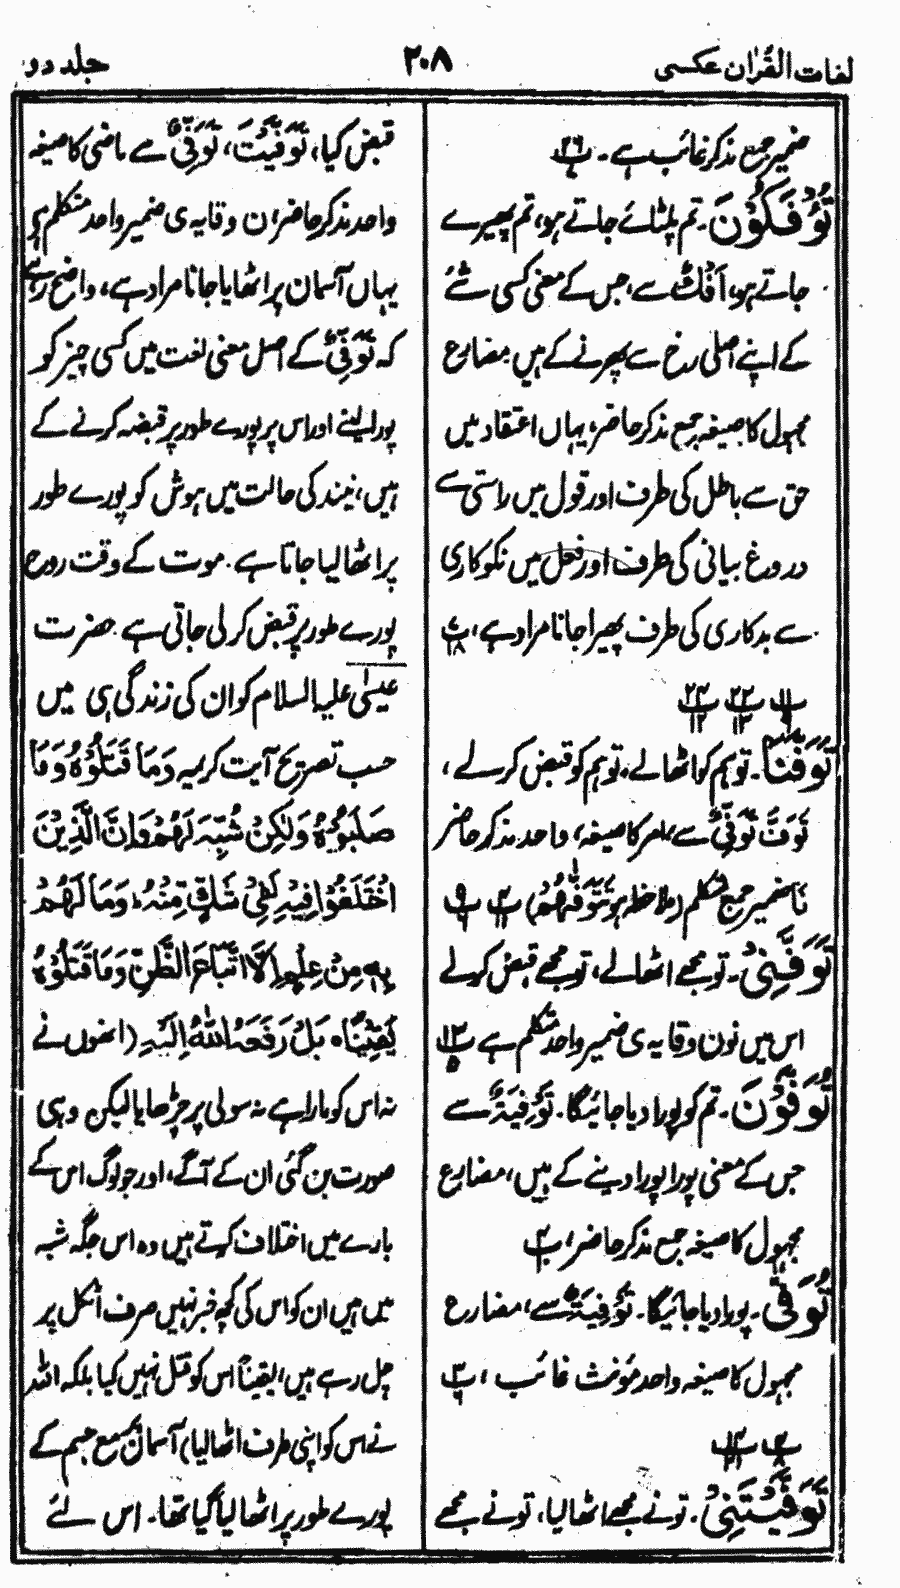 لغات القُرآن عکسی
۲۰۸
جلد دو
ضمیر جمع مذکر غائب ہے۔ پ ۲۶
تُؤْفَكُوْنَ۔ تم پلٹائے جاتے ہو، تم پھیرے
جاتے ہو، اَفْكٌ سے، جس کے معنی کسی شئے
کے اپنے اصلی رخ سے پھرنے کے ہیں مضارع
مجہول کا صیغہ جمع مذکر حاضر، یہاں اعتقاد میں
حق سے باطل کی طرف اور قول میں راستی سے
دروغ بیانی کی طرف اور فعل میں نکوکاری
سے بدکاری کی طرف پھیرا جانا مراد ہے،
تَوَفَّنَا۔ تو ہم کو اٹھالے، تو ہم کو قبض کرلے،
تَوَفَّ تَوَفِّیْ سے، امر کا صیغہ، واحد مذکر حاضر
نَا ضمیر جمع متکلم (ملاحظہ ہو تَتَوَفّٰهُمْ)
تَوَفَّنِیْ۔ تو مجھے اٹھالے، تو مجھے قبض کرلے
اس میں نون وقایہ ی ضمیر واحد متکلم ہے
تُوَفَّوْنَ۔ تم کو پورا دیا جائیگا۔ تَوْفِیَۃٌ سے
جس کے معنی پورا پورا دینے کے ہیں، مضارع
مجہول کا صیغہ جمع مذکر حاضر،
تُوَفّٰى۔ پورا دیا جائیگا۔ تَوْفِیَۃٌ سے، مضارع
مجہول کا صیغہ واحد مؤنث غائب،
تَوَفَّیْتَنِیْ۔ تونے مجھے اٹھا لیا، تونے مجھے
قبض کیا، تَوَفَّیْتَ، تَوَفِّیْ سے ماضی کا صیغہ
واحد مذکر حاضر، ن وقایہ ی ضمیر واحد متکلم ہے
یہاں آسمان پر اٹھایا جانا مراد ہے، واضح رہے
کہ تَوَفِّیْ کے اصل معنی لغت میں کسی چیز کو
پورا لینے اور اس پر پورے طور پر قبضہ کرنے کے
ہیں، نیند کی حالت میں ہوش کو پورے طور
پر اٹھا لیا جاتا ہے۔ موت کے وقت روح
پورے طور پر قبض کر لی جاتی ہے۔ حضرت
عیسٰی علیہ السلام کو ان کی زندگی ہی میں
حسب تصریح آیت کریمہ وَمَا قَتَلُوْهُ وَمَا
صَلَبُوْهُ وَلٰكِنْ شُبِّهَ لَهُمْ وَاِنَّ الَّذِيْنَ
اخْتَلَفُوْا فِيْهِ لَفِيْ شَكٍّ مِّنْهُ، وَمَا لَهُمْ
بِهٖ مِنْ عِلْمٍ اِلَّا اتِّبَاعَ الظَّنِّ وَمَا قَتَلُوْهُ
يَقِيْنًا، بَلْ رَّفَعَهُ اللّٰهُ اِلَيْهِ (انھوں نے
نہ اس کو مارا ہے نہ سولی پر چڑھایا لیکن وہی
صورت بن گئی ان کے آگے، اور جو لوگ اس کے
بارے میں اختلاف کرتے ہیں وہ اس جگہ شبہ
میں ہیں ان کو اس کی کچھ خبر نہیں صرف اٹکل پر
چل رہے ہیں، یقیناً اس کو قتل نہیں کیا بلکہ اللہ
نے اس کو اپنی طرف اٹھا لیا) آسمان جسم کے
پورے طور پر اٹھا لیا گیا تھا۔ اس لئے